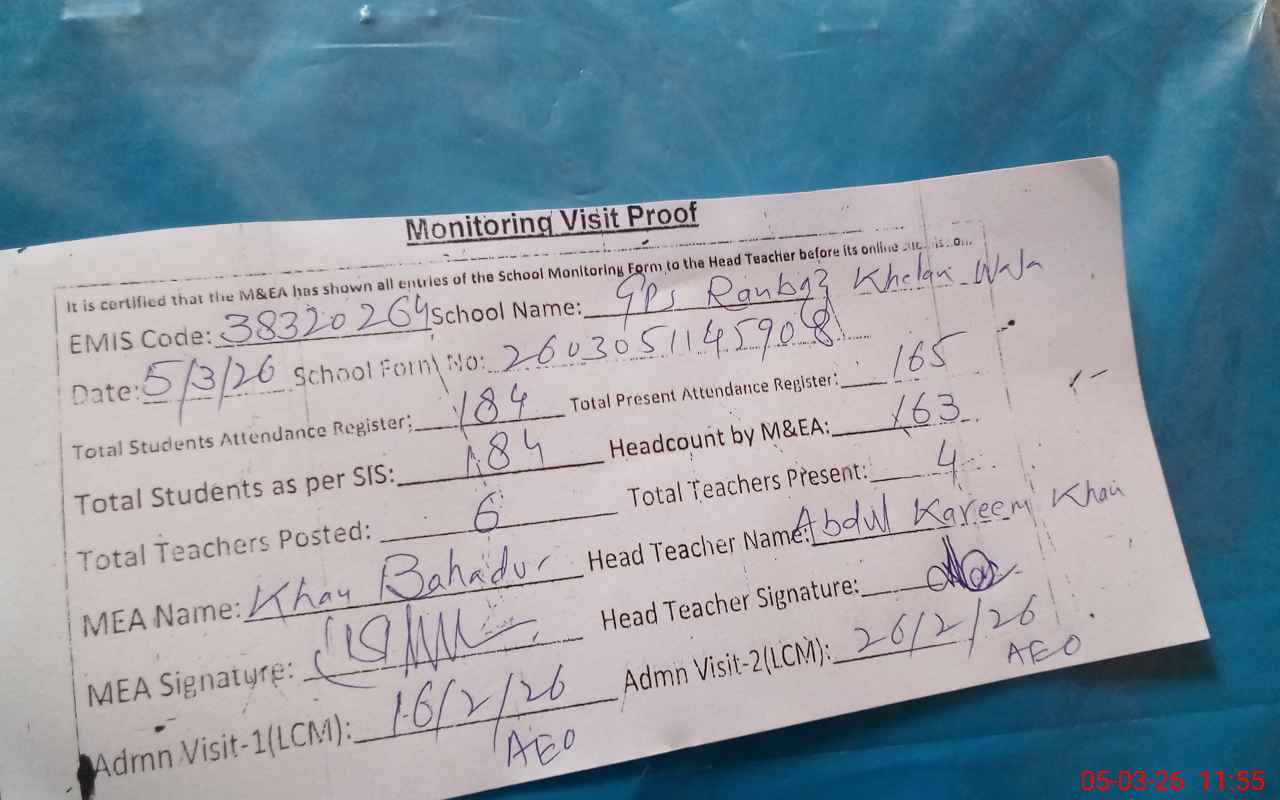 Monitoring Visit Proof
It is certified that the M&EA has shown all entries of the School Monitoring Form to the Head Teacher before its online
EMIS Code: 38320264 School Name: GPS Ranbaz Khelan Wala
Date: 5/3/26 School Form No: 2603051145908
Total Students Attendance Register: 184 Total Present Attendance Register: 165
Total Students as per SIS: 184 Headcount by M&EA: 163
Total Teachers Posted: 6 Total Teachers Present: 4
MEA Name: Khan Bahadur Head Teacher Name: Abdul Kareem Khan
MEA Signature: Head Teacher Signature:
Admn Visit-1(LCM): 16/2/26 Admn Visit-2(LCM): 26/2/26
AEO AEO
05-03-26 11:55